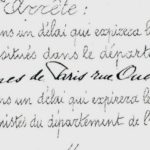 Arrête:
ns un délai qui expirera l
situés dans le départe
nes de Paris rue Oua
ns un délai qui expirera le
nistes du département de l'